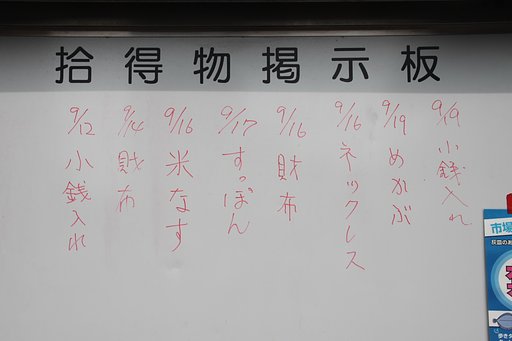 拾得物掲示板
9/19 小銭入れ
9/19 めかぶ
9/16 ネックレス
9/16 財布
9/17 すっぽん
9/16 米なす
9/14 財布
9/12 小銭入れ
市場